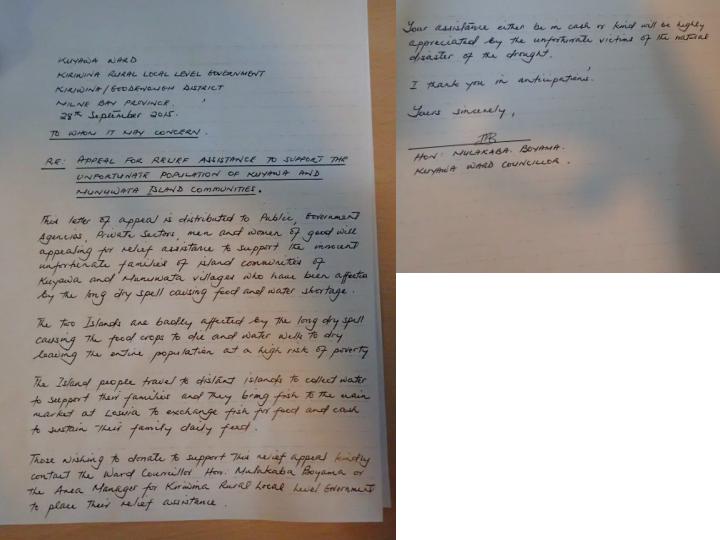 KUYAWA WARD
KIRIWINA RURAL LOCAL LEVEL GOVERNMENT
KIRIWINA/GOODENOUGH DISTRICT
MILNE BAY PROVINCE.
28th September 2015.
TO WHOM IT MAY CONCERN.
RE: APPEAL FOR RELIEF ASSISTANCE TO SUPPORT THE
UNFORTUNATE POPULATION OF KUYAWA AND
MUNUWATA ISLAND COMMUNITIES.
This letter of appeal is distributed to Public, Government
Agencies, Private Sectors, men and women of good will
appealing for relief assistance to support the innocent
unfortunate families of island communities of
Kuyawa and Munuwata villages who have been affected
by the long dry spell causing food and water shortage.
The two Islands are badly affected by the long dry spell
causing the food crops to die and water wells to dry
leaving the entire population at a high risk of poverty
The Island people travel to distant islands to collect water
to support their families and they bring fish to the main
market at Losuia to exchange fish for food and cash
to sustain their family daily feed.
Those wishing to donate to support this relief appeal kindly
contact the Ward Councillor Hon. Mulakaba Boyama or
the Area Manager for Kiriwina Rural Local Level Government
to place their relief assistance.
Your assistance either be in cash or kind will be highly
appreciated by the unfortunate victims of the natural
disaster of the drought.
I thank you in anticipations.
Yours sincerely,
HON. MULAKABA. BOYAMA.
KUYAWA WARD COUNCILLOR.